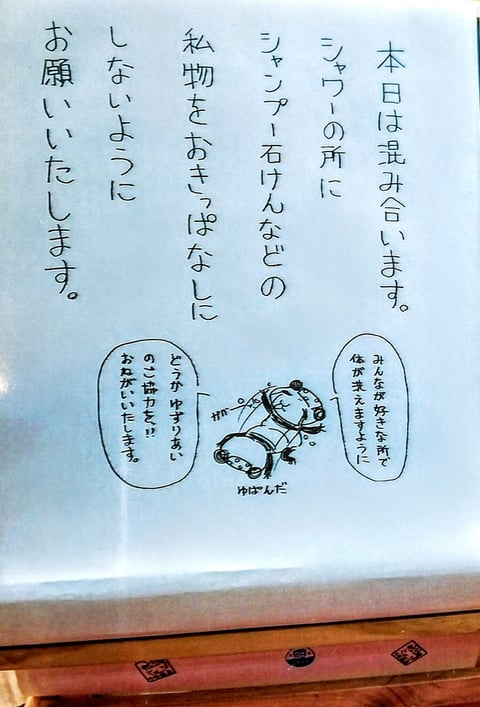 本日は混み合います。
シャワーの所に
シャンプー石けんなどの
私物をおきっぱなしに
しないように
お願いいたします。
みんなが好きな所で
体が洗えますように
どうか ゆずりあい
のご協力を!!
おねがいいたします。
ゆぱんだ